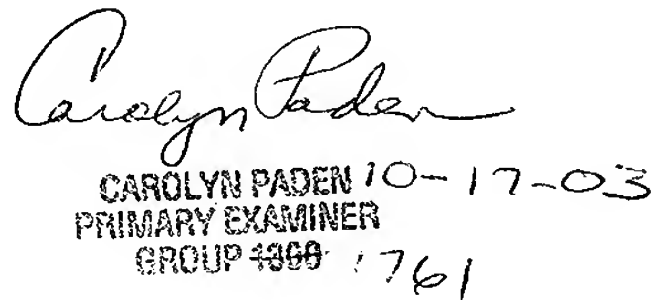 Carolyn Paden
CAROLYN PADEN 10-17-03
PRIMARY EXAMINER
GROUP 1761